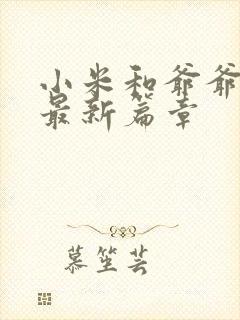 小米和爷爷
最新篇章
慕笙芸